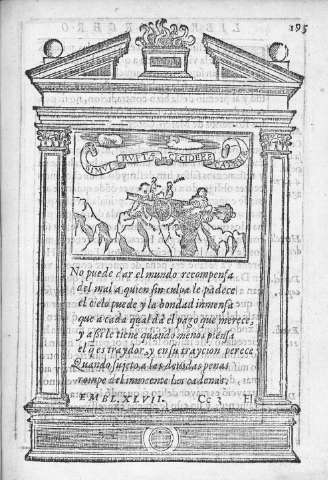 195
No puede dar el mundo recompensa
del mal a quien sin culpa le padece
el cielo puede y la bondad inmensa
que a cada qual da el pago que merece,
y assi le tiene quando menos piensa
el q̃ es traydor, y en su traycion perece
Quando justo a las deuidas penas
rompe del inocente las cadenas.
EMBL. XLVII. Cc 3 El